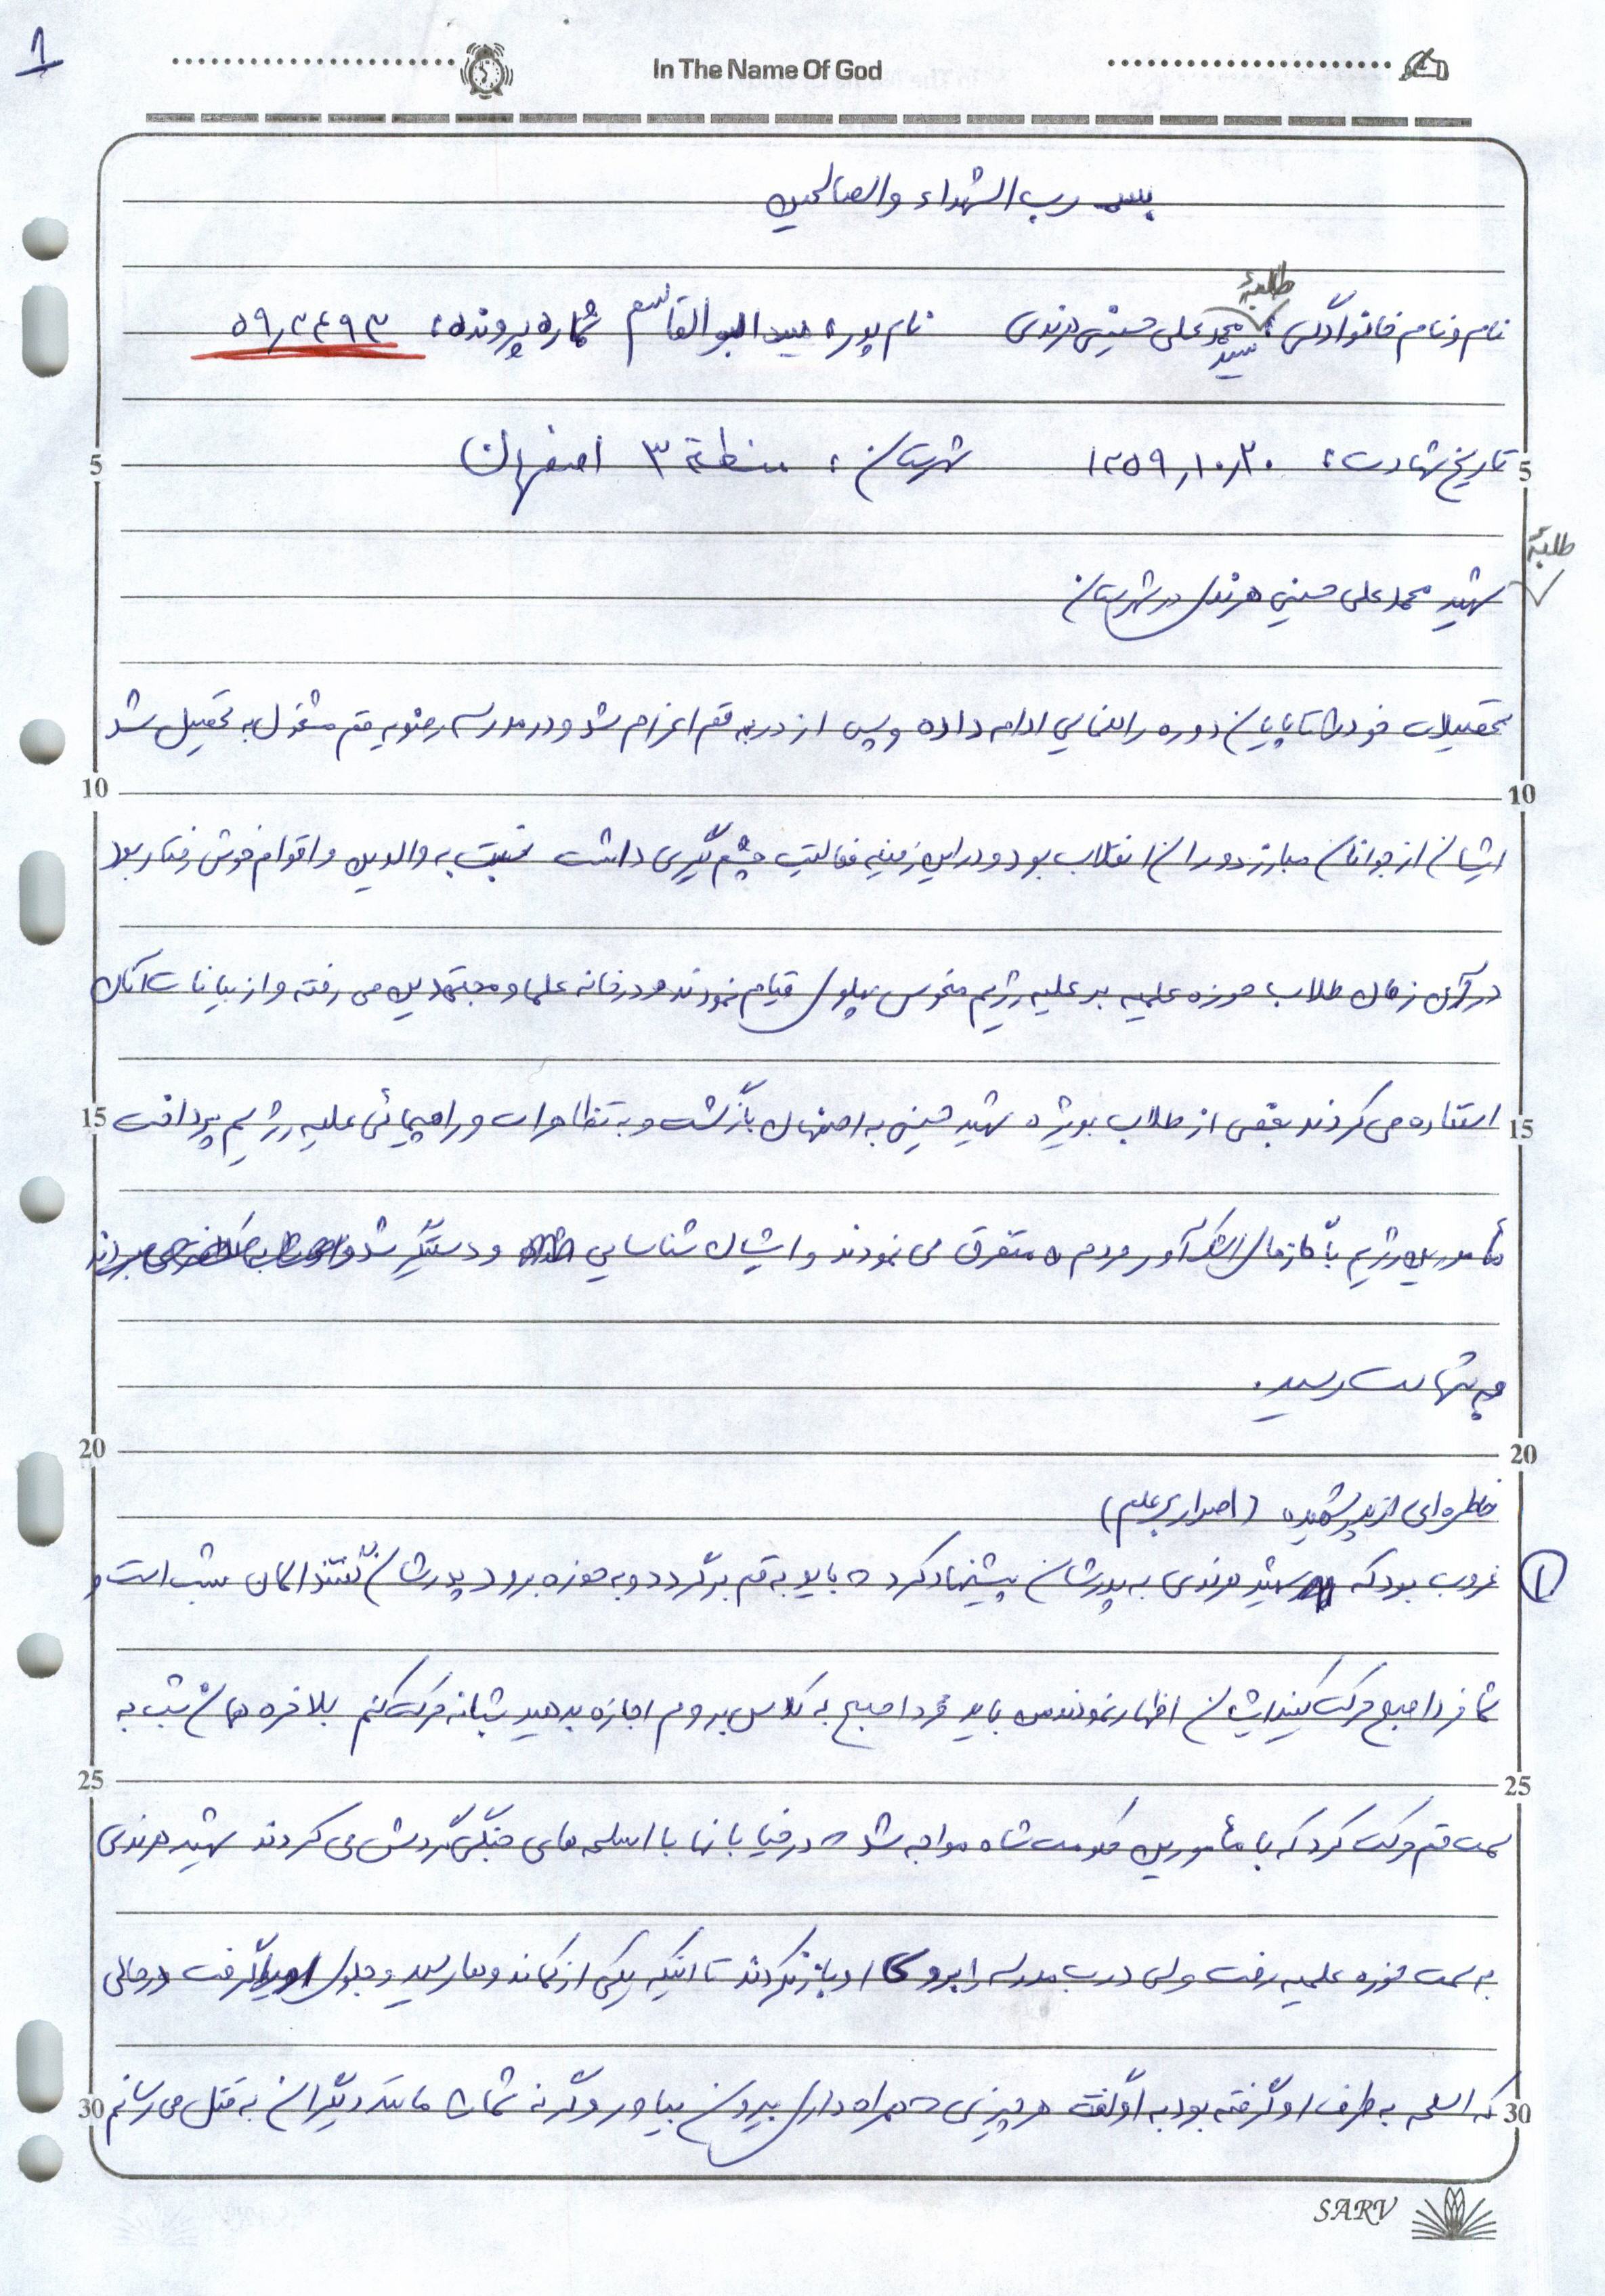 1
In The Name Of God
بسم رب الشهداء والصالحین
طلبهٔ
نام و نام خانوادگی: سید محمد علی حسینی هرندی نام پدر: سید ابوالقاسم شماره پرونده: ۵۹/۳۴۹۳
تاریخ شهادت: ۱۳۵۹/۱۰/۳۰ شهرستان: منطقه ۳ اصفهان
طلبهٔ
شهید محمد علی حسینی هرندی در شهرستان
تحصیلات خود را تا پایان دوره راهنمایی ادامه داده و پس از در به قم اعزام شد و در مدرسه رضویه قم مشغول به تحصیل شد
ایشان از جوانان مبارز دوران انقلاب بود و در این زمینه فعالیت چشم گیری داشت نسبت به والدین و اقوام خوش رفتار بود
در آن زمان طلاب حوزه علمیه بر علیه رژیم منحوس پهلوی قیام نمودند و در خانه علما و مجتهدین می رفته و از بیانات آنان
استفاده می کردند بعضی از طلاب بویژه شهید حسینی به اصفهان بازگشت و به تظاهرات و راهپیمائی علیه رژیم پرداخت
مأمورین رژیم با گازهای اشک آور مردم را متفرق می نمودند و ایشان شناسایی و دستگیر شد
و به شهادت رسید.
خاطره ای از پدر شهید (اصرار بر علم)
۱ غروب بود که شهید هرندی به پدرشان پیشنهاد کرد که باید به قم برگردد و به حوزه برود پدرشان گفتند الان شب است و
شما فردا صبح حرکت کنید ایشان اظهار نمودند من باید فردا صبح به کلاس بروم اجازه بدهید شبانه حرکت کنم بلاخره همان شب به
سمت قم حرکت کرد که با مأمورین حکومت شاه مواجه شد که در خیابانها با اسلحه های جنگی گردش می کردند شهید هرندی
به سمت حوزه علمیه رفت ولی درب مدرسه را بروی او باز نکردند تا اینکه یکی از کماندوها رسید و جلوی او را گرفت در حالی
که اسلحه به طرف او گرفته بود به او گفت هر چیزی که همراه داری بیرون بیاور وگرنه شما را مانند دیگران به قتل می رسانم
5
5
10
10
15
15
20
20
25
25
30
30
SARV